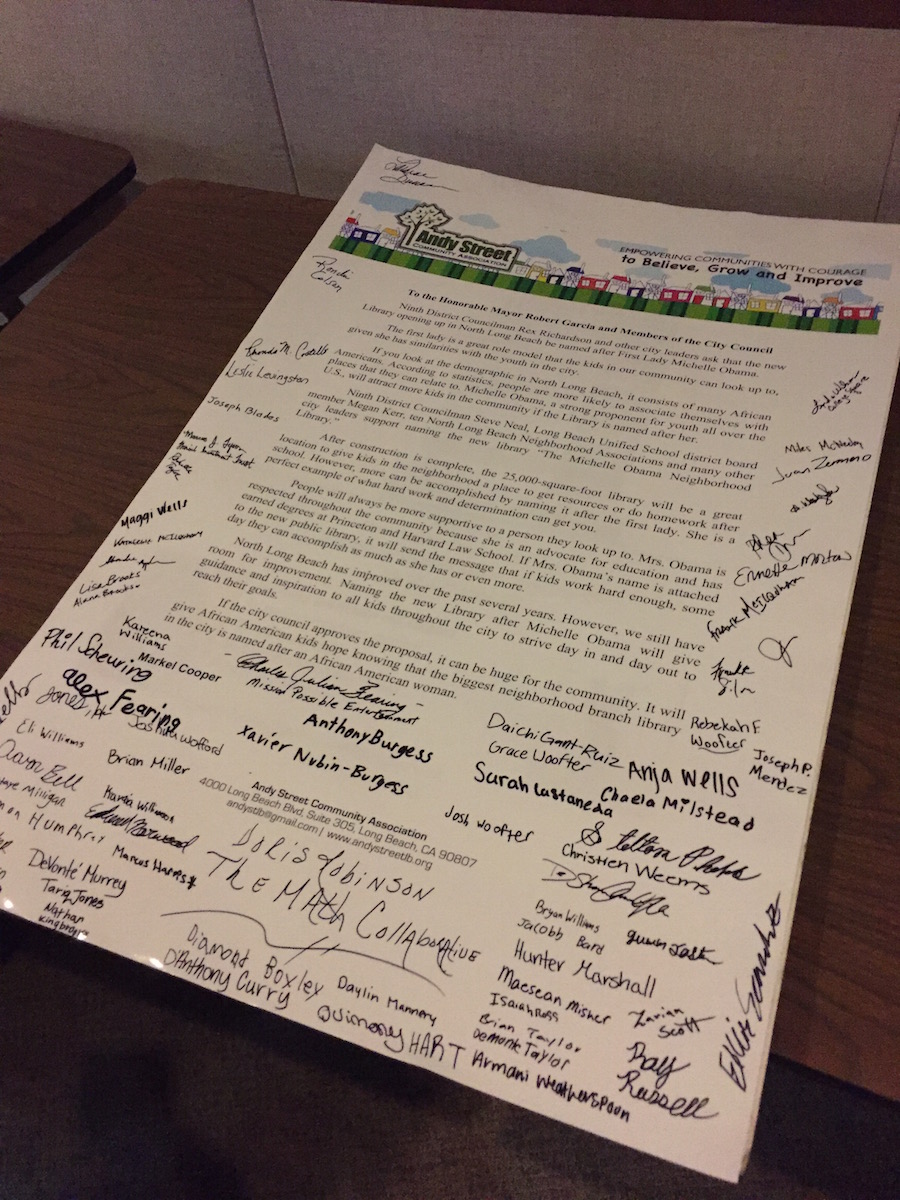 Andy Street
COMMUNITY ASSOCIATION
EMPOWERING COMMUNITIES WITH COURAGE
to Believe, Grow and Improve
To the Honorable Mayor Robert Garcia and Members of the City Council
Ninth District Councilman Rex Richardson and other city leaders ask that the new
Library opening up in North Long Beach be named after First Lady Michelle Obama.
The first lady is a great role model that the kids in our community can look up to,
given she has similarities with the youth in the city.
If you look at the demographic in North Long Beach, it consists of many African
Americans. According to statistics, people are more likely to associate themselves with
places that they can relate to. Michelle Obama, a strong proponent for youth all over the
U.S., will attract more kids in the community if the Library is named after her.
Ninth District Councilman Steve Neal, Long Beach Unified School district board
member Megan Kerr, ten North Long Beach Neighborhood Associations and many other
city leaders support naming the new library "The Michelle Obama Neighborhood
Library."
After construction is complete, the 25,000-square-foot library will be a great
location to give kids in the neighborhood a place to get resources or do homework after
school. However, more can be accomplished by naming it after the first lady. She is a
perfect example of what hard work and determination can get you.
People will always be more supportive to a person they look up to. Mrs. Obama is
respected throughout the community because she is an advocate for education and has
earned degrees at Princeton and Harvard Law School. If Mrs. Obama's name is attached
to the new public library, it will send the message that if kids work hard enough, some
day they can accomplish as much as she has or even more.
North Long Beach has improved over the past several years. However, we still have
room for improvement. Naming the new Library after Michelle Obama will give
guidance and inspiration to all kids throughout the city to strive day in and day out to
reach their goals.
If the city council approves the proposal, it can be huge for the community. It will
give African American kids hope knowing that the biggest neighborhood branch library
in the city is named after an African American woman.
Rhonda M. Costello
Leslie Levingston
Joseph Blades
Maggi Wells
Lisa Brooks
Alana Brooks
Miles McNeeley
Juan Zermeno
Ernestine Morton
Frank McIlquham
Kareena
Williams
Phil Scheuring
Markel Cooper
Charles Julian Fearing
Mission Possible Entertainment
alex Fearing
Jones, H
Joshua Wofford
Anthony Burgess
Xavier Nubin-Burgess
Eli Williams
Aaron Bell
Brian Miller
Karen Williams
Milligan
Humphrey
Marcus Harris
DeVonté Murrey
Tariq Jones
Nathan
Andy Street Community Association
4000 Long Beach Blvd, Suite 305, Long Beach, CA 90807
andystlb@gmail.com | www.andystreetlb.org
Doris Robinson
The Math Collaborative
Daichi Grant-Ruiz
Grace Woofter
Rebekah F.
Woofter
Joseph P.
Mendez
Anja Wells
Sarah Castaneda
Chaela Milstead
Josh Woofter
Christien Weems
Bryan Williams
Jacobb Bard
Hunter Marshall
Maesean Misher
Isaiah Ross
Zarian
Scott
Brian Taylor
Demonte Taylor
Ray
Russell
Diamond Boxley
D'Anthony Curry
Daylin Mannery
Quimoney HART
Armani Weatherspoon